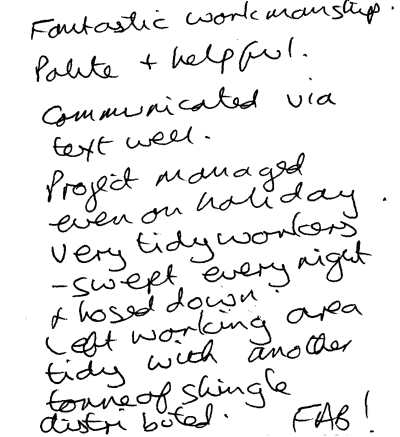 Fantastic workmanship.
Polite + helpful.
Communicated via
text well.
Project managed
even on holiday.
Very tidy workers
- swept every night
+ hosed down.
Left working area
tidy with another
tonne of shingle
distributed. FAB!